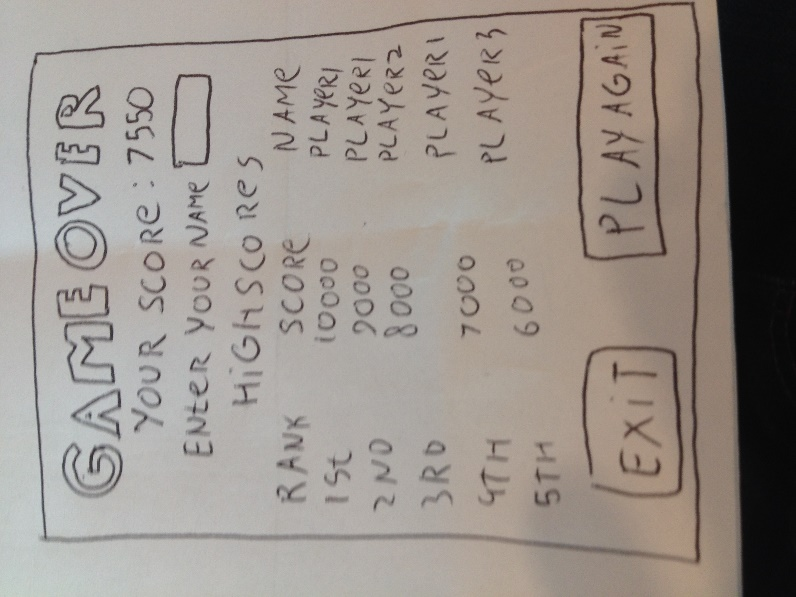 GAME OVER
YOUR SCORE: 7550
ENteR YOUR NAMe
HiGHSCOReS
RANK SCORe NAMe
1St 10000 PLAYeR1
2ND 9000 PLAYeR1
3RD 8000 PLAYeR2
4TH 7000 PLAYeR1
5TH 6000 PLAYeR3
EXiT PLAY AGAiN